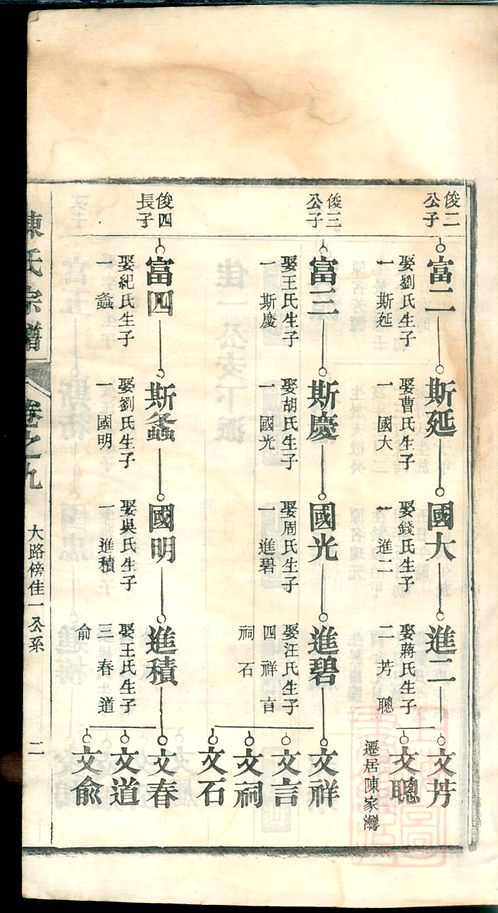 俊二
公子
富二
娶劉氏生子
一斯延
斯延
娶曹氏生子
一國大
國大
娶錢氏生子
一進二
進二
娶蔣氏生子
二芳聰
文芳
文聰
遷居陳家灣
俊三
公子
富三
娶王氏生子
一斯慶
斯慶
娶胡氏生子
一國光
國光
娶周氏生子
一進碧
進碧
娶汪氏生子
四祥言
祠石
文祥
文言
文祠
文石
俊四
長子
富四
娶紀氏生子
一螽
斯螽
娶劉氏生子
一國明
國明
娶吳氏生子
一進積
進積
娶王氏生子
三春道
俞
文春
文道
文俞
陳氏宗譜
卷之九
大路傍佳一公系
二